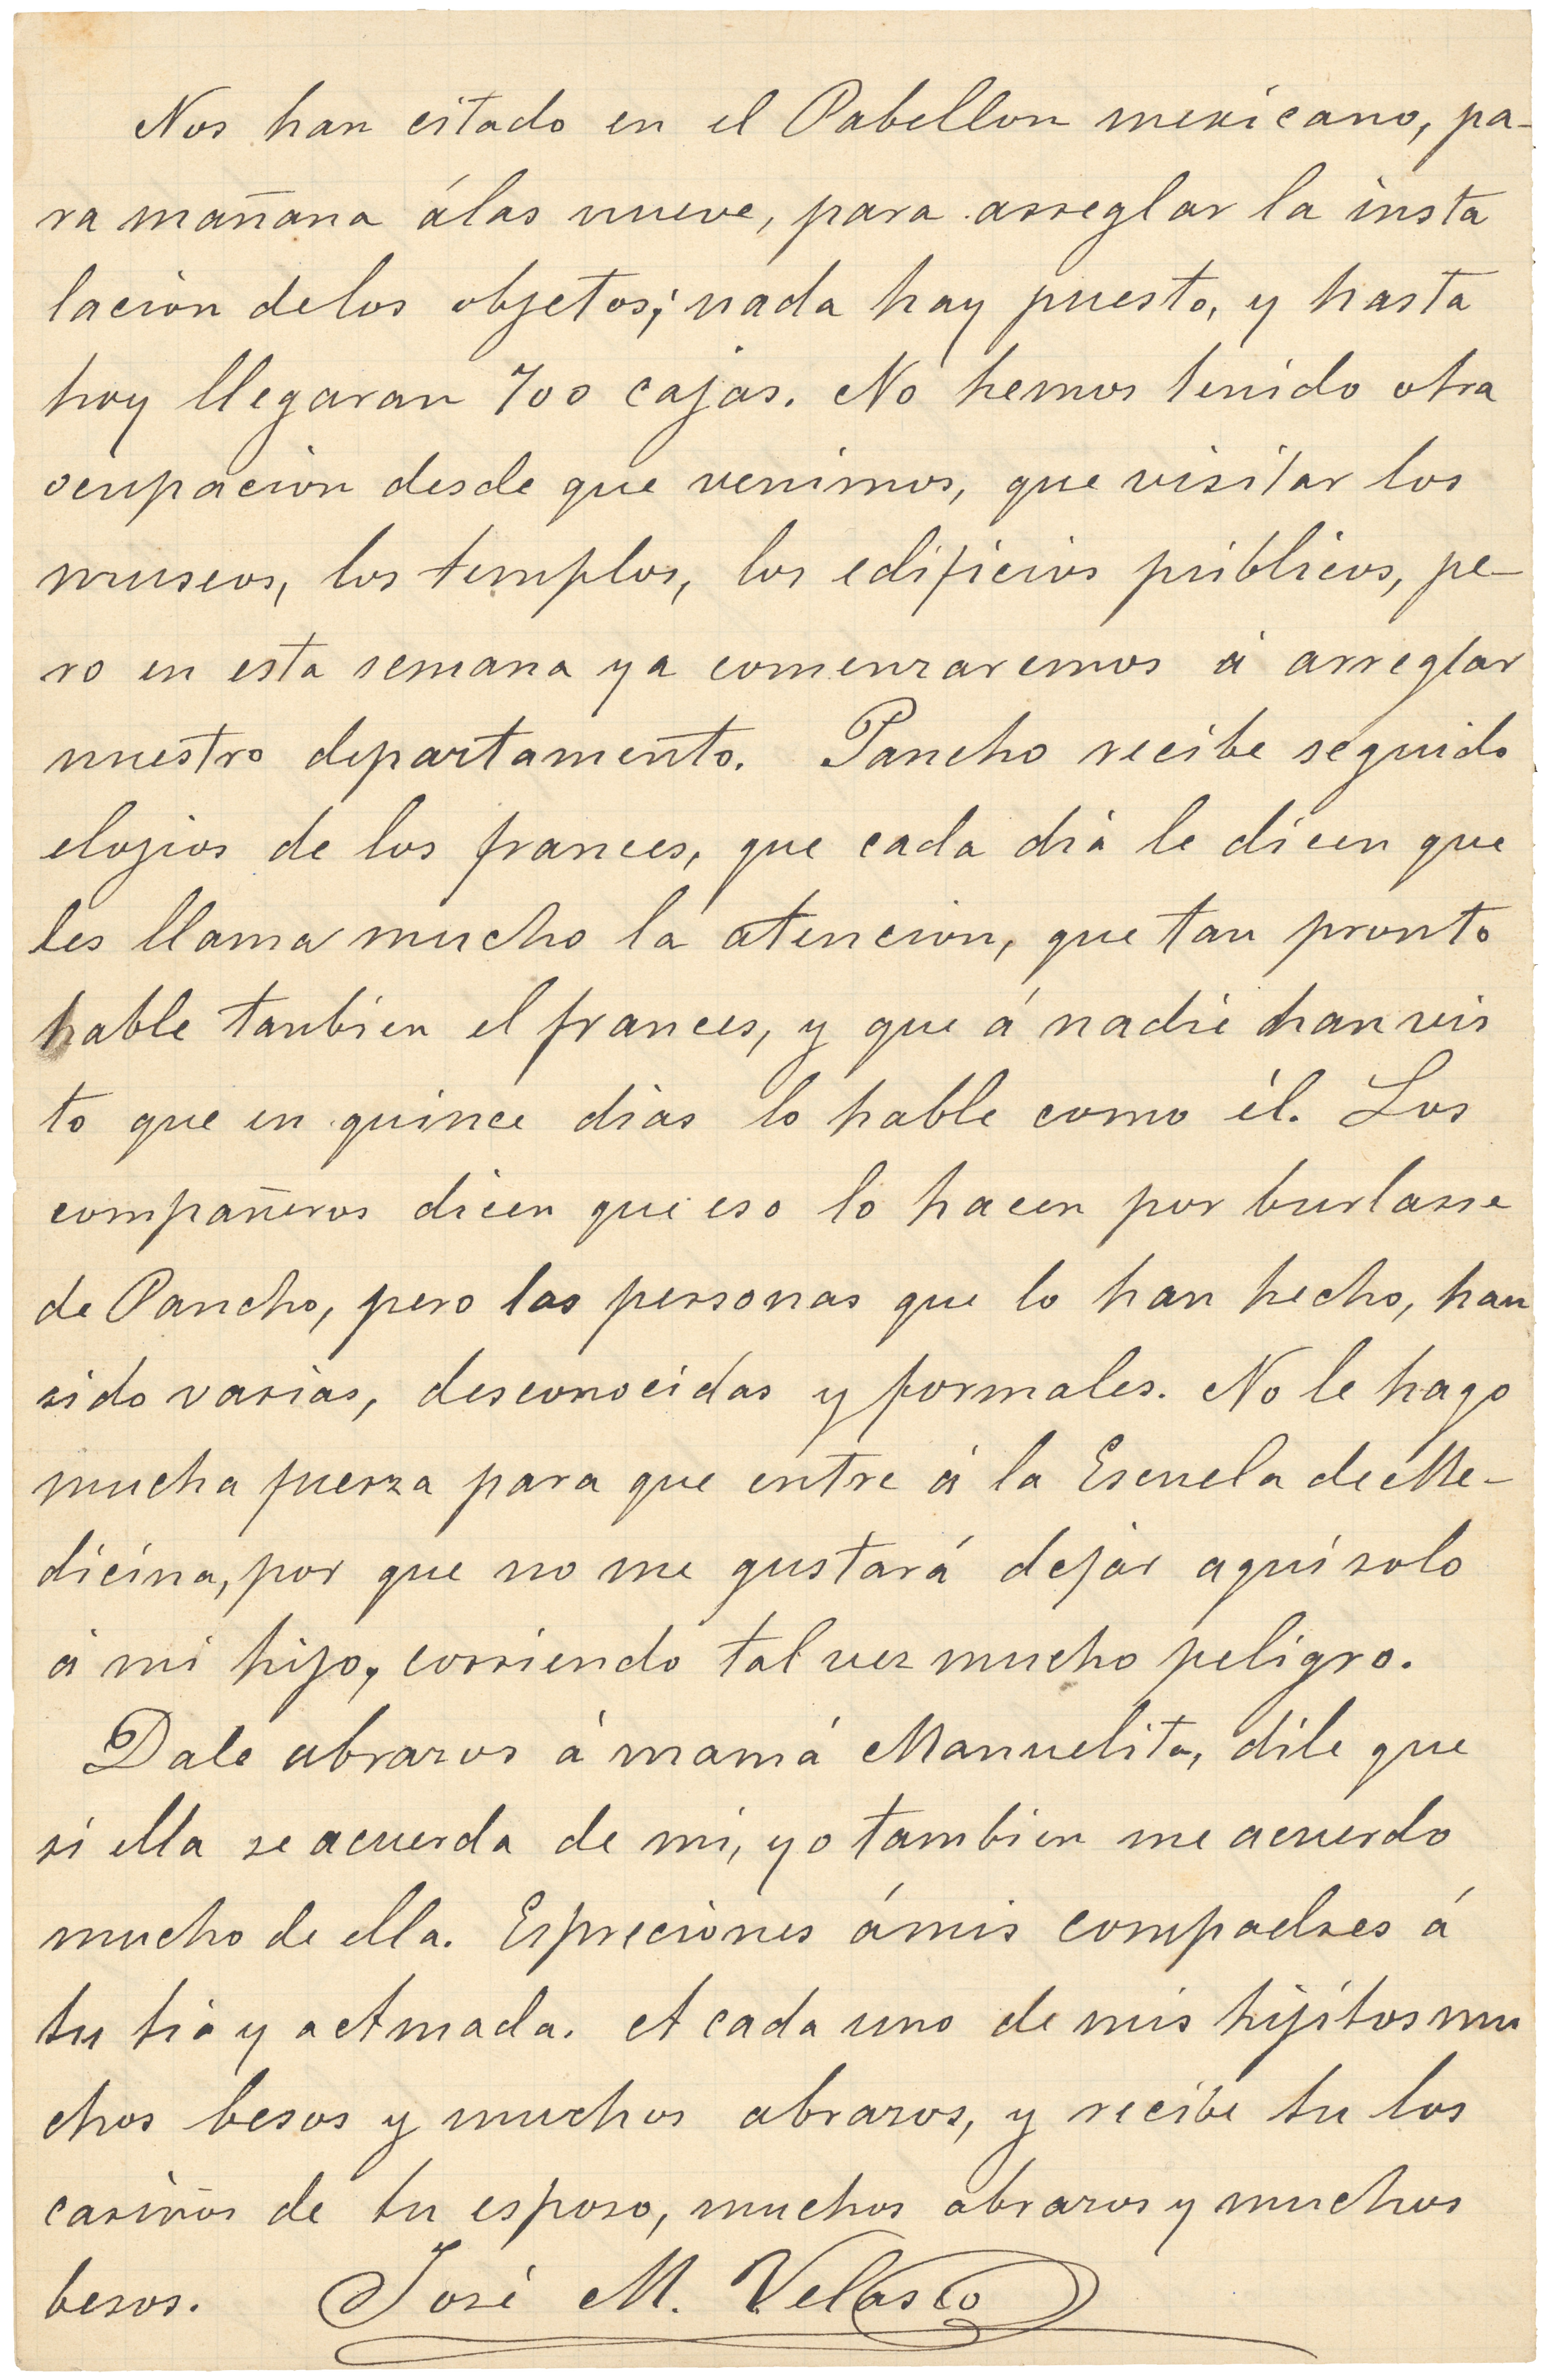 Nos han citado en el Pabellon mexicano, pa-
ra mañana álas nueve, para arreglar la insta
lacion delos objetos; nada hay puesto, y hasta
hoy llegaran 700 cajas. No hemos tenido otra
ocupacion desde que venimos, que visitar los
museos, los templos, los edificios públicos, pe-
ro en esta semana ya comenzaremos á arreglar
nuestro departamento. Pancho recibe seguido
elojios de los frances, que cada dia le dicen que
les llama mucho la atencion, que tan pronto
hable tanbien el frances, y que á nadie han vis
to que en quince dias lo hable como él. Los
compañeros dicen que eso lo hacen por burlarse
de Pancho, pero las personas que lo han hecho, han
sido varias, desconocidas y formales. No le hago
mucha fuerza para que entre á la Escuela de Me-
dicina, por que no me gustará dejar aquí solo
á mi hijo, corriendo tal vez mucho peligro.
Dale abrazos á mamá Manuelita, dile que
si ella se acuerda de mi, yo tambien me acuerdo
mucho de ella. Espreciones ámis compadres á
tu tia y a Amada. A cada uno de mis hijitos mu
chos besos y muchos abrazos, y recibe tu los
cariños de tu esposo, muchos abrazos y muchos
besos. José M. Velasco